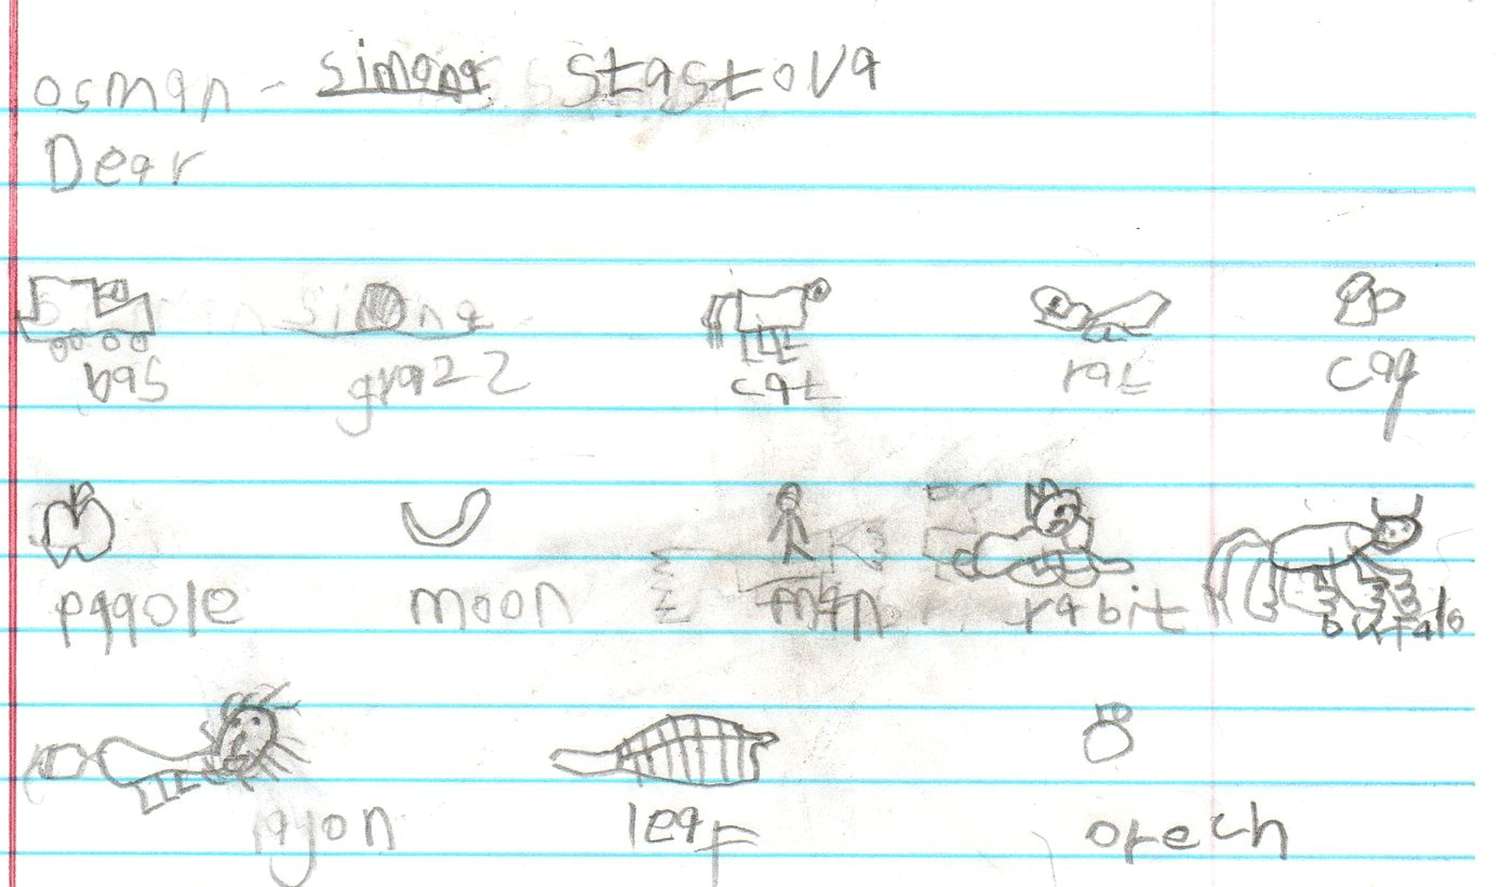 osman - simona stastova
Dear
simona
bas grazz cat rat cap
pqqole moon man rabit bufalo
lajon leaf orech